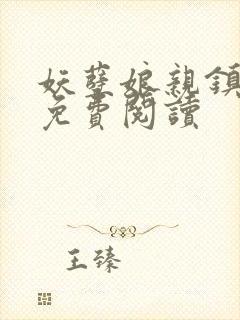 妖孽娘親鎮
免費閱讀
王臻